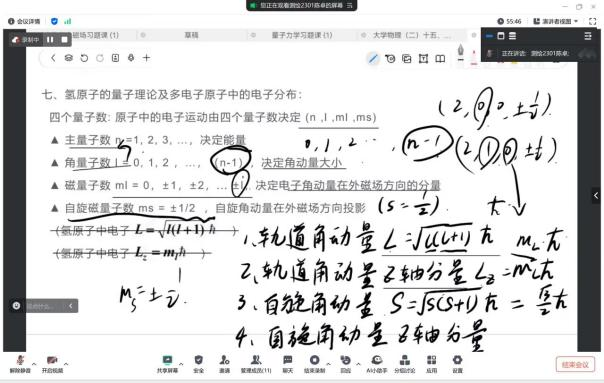 您正在观看测绘2301陈卓的屏幕
会议详情
55:46
演讲者视图
录制中
磁场习题课 (1)
草稿
量子力学习题课 (1)
大学物理（二）十五、...
正在讲话: 测绘2301陈卓;
七、氢原子的量子理论及多电子原子中的电子分布：
四个量子数: 原子中的电子运动由四个量子数决定 (n ,l ,ml ,ms)
(2, 0, 0, ±½)
▲ 主量子数 n =1, 2, 3, …, 决定能量
0, 1, 2 ··· , (n-1)
(2, 1, 0, ±½)
▲ 角量子数 l = 0, 1, 2 , …, (n-1) , 决定角动量大小
▲ 磁量子数 ml = 0, ±1, ±2, … ±l, 决定电子角动量在外磁场方向的分量
▲ 自旋磁量子数 ms = ±1/2 , 自旋角动量在外磁场方向投影
(S = ½)
ħ
(氢原子中电子 L = √l(l+1) ħ )
(氢原子中电子 L_z = m_l ħ )
m_s = ±½
1、轨道角动量 L = √l(l+1) ħ
m_L ħ
2、轨道角动量 z轴分量 L_z = m_L ħ
3、自旋角动量 S = √s(s+1) ħ = √3/2 ħ
4、自旋角动量 z轴分量
说点什么...
解除静音
开启视频
共享屏幕
安全
邀请
管理成员(11)
聊天
结束录制
回应
AI小助手
分组讨论
应用
设置
结束会议